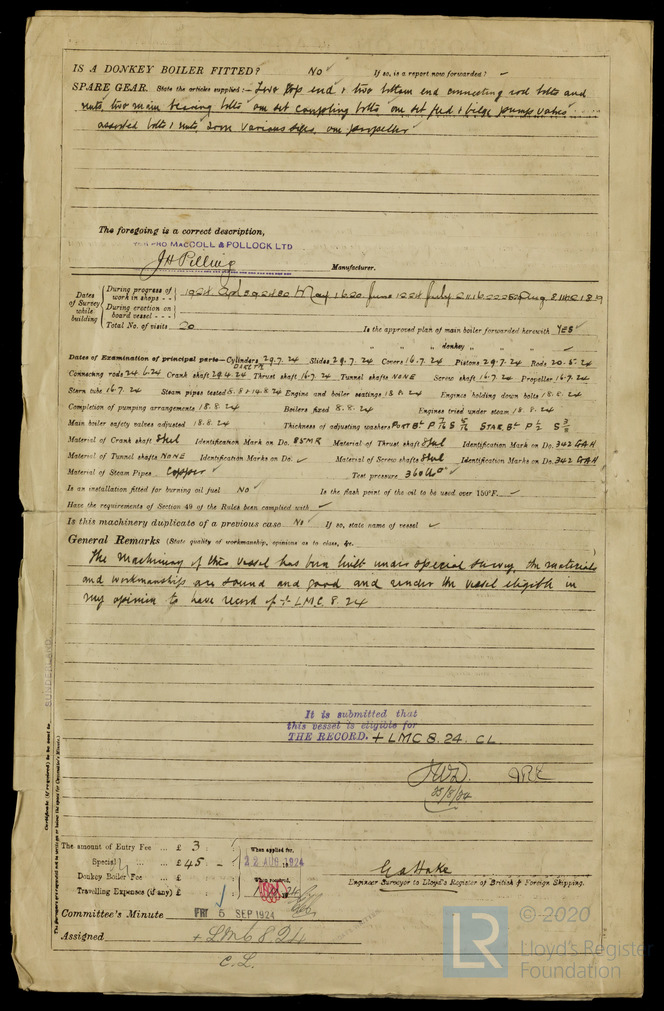 IS A DONKEY BOILER FITTED? No ✓ If so, is a report now forwarded? ✓
SPARE GEAR. State the articles supplied:— Two top end & two bottom end connecting rod bolts and
nuts, two main bearing bolts one set coupling bolts one set feed & bilge pump valves
assorted bolts & nuts, iron various sizes, one propeller
The foregoing is a correct description,
MACCOLL & POLLOCK LTD
JH Pilling Manufacturer.
Dates of Survey while building
During progress of work in shops - - 1924 May June July Aug
During erection on board vessel - - -
Total No. of visits 20 Is the approved plan of main boiler forwarded herewith YES
" " " donkey " " " ✓
Dates of Examination of principal parts—Cylinders 29.7.24 Slides 29.7.24 Covers 16.7.24 Pistons 29.7.24 Rods 20.5.24
Connecting rods 24.6.24 Crank shaft 29.4.24 Thrust shaft 16.7.24 Tunnel shafts NONE Screw shaft 16.7.24 Propeller 16.7.24
Stern tube 16.7.24 Steam pipes tested 14.8.24 Engine and boiler seatings 18.8.24 Engines holding down bolts 18.8.24
Completion of pumping arrangements 18.8.24 Boilers fixed 8.8.24 Engines tried under steam 18.8.24
Main boiler safety valves adjusted 18.8.24 Thickness of adjusting washers PORT BR P S STAR BR P 1/2 S
Material of Crank shaft Steel Identification Mark on Do. 85MR Material of Thrust shaft Steel Identification Mark on Do. 342 GAH
Material of Tunnel shafts NONE Identification Marks on Do. ✓ Material of Screw shaft Steel Identification Marks on Do. 342 GAH
Material of Steam Pipes Copper ✓ Test pressure 360 lbs
Is an installation fitted for burning oil fuel NO ✓ Is the flash point of the oil to be used over 150°F. ✓
Have the requirements of Section 49 of the Rules been complied with ✓
Is this machinery duplicate of a previous case No ✓ If so, state name of vessel ✓
General Remarks (State quality of workmanship, opinions as to class, &c.
The Machinery of this vessel has been built under special survey, the materials
and workmanship are sound and good and render the vessel eligible in
my opinion to have record of + LMC 8.24
It is submitted that
this vessel is eligible for
THE RECORD. + LMC 8.24. CL
JWD. JRK
25/8/24
SUNDERLAND
Certificate (if required) to be sent to
The amount of Entry Fee ... £ 3
Special " ... £ 45
Donkey Boiler Fee ... £
Travelling Expenses (if any) £
When applied for,
22 AUG 1924
When received,
GA Hake
Engineer Surveyor to Lloyd's Register of British & Foreign Shipping.
Committee's Minute FRI 5 SEP 1924
Assigned + LMC 8.24
C.L.
LR
© 2020
Lloyd's Register
Foundation